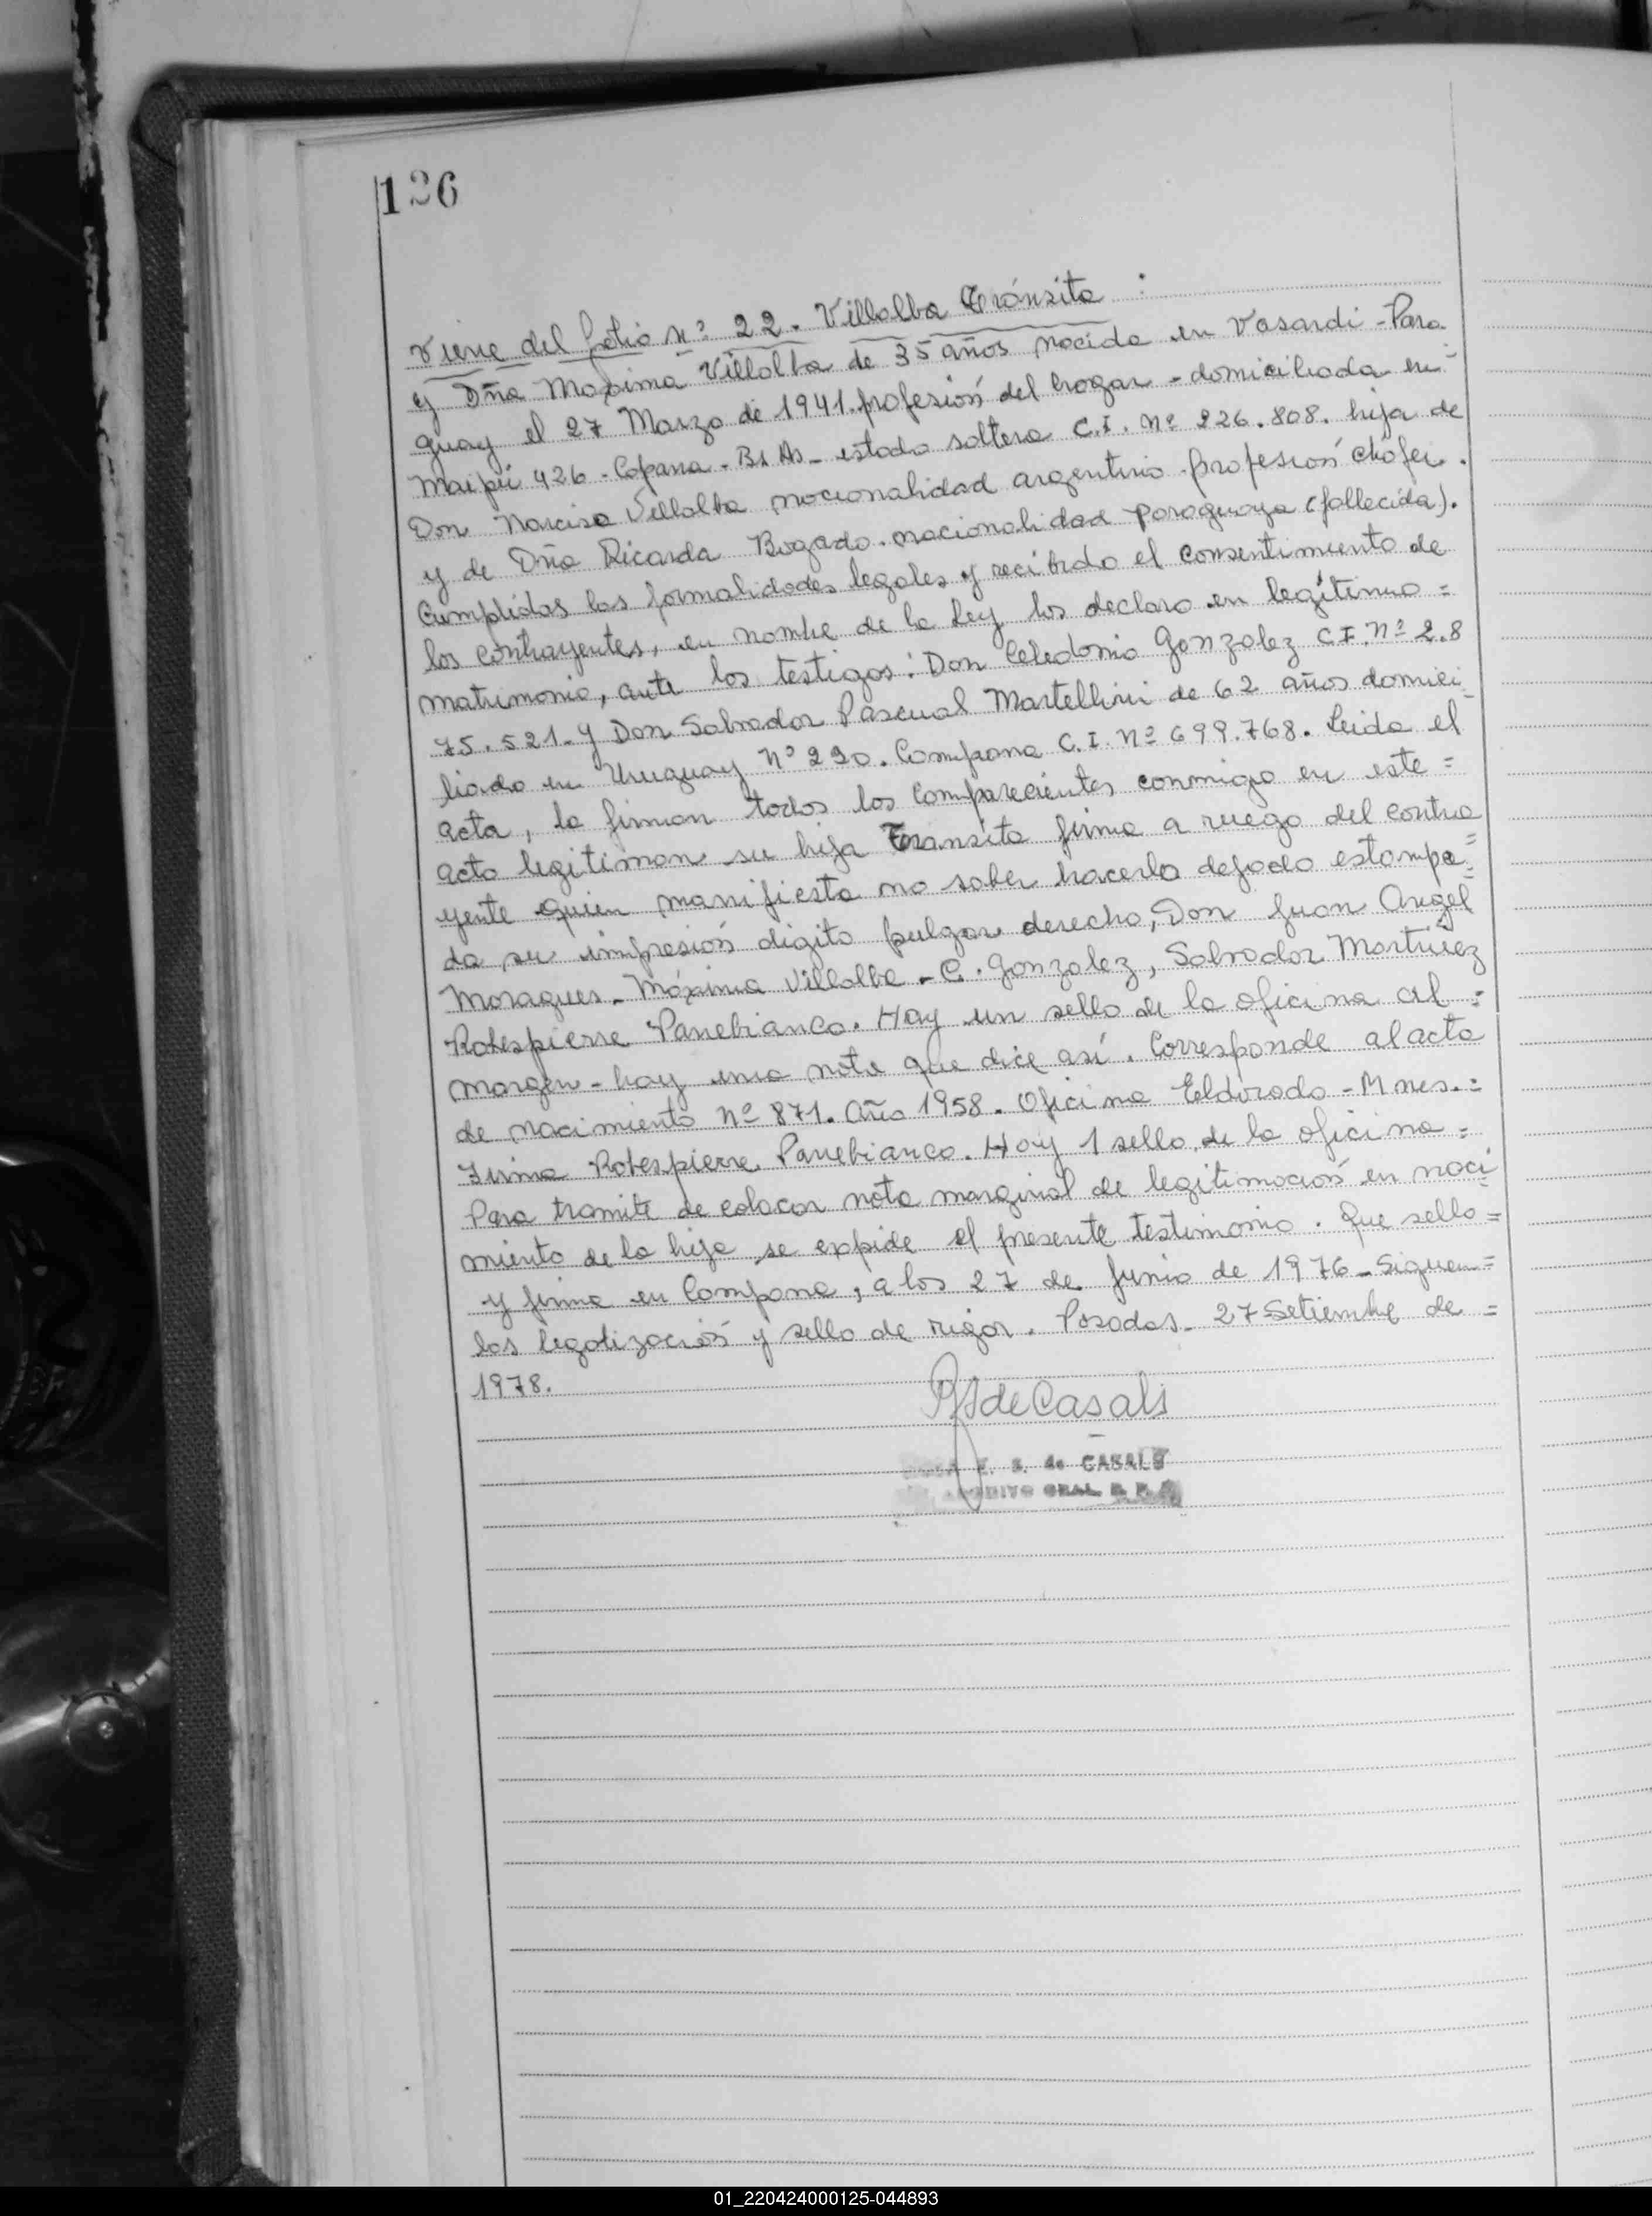 126
Viene del folio nº 22. Villalba Tránsita :
y Dña Maxima Villalba de 35 años nacida en Vasardi - Para
guay el 27 Marzo de 1941. profesión del hogar - domiciliada en
Maipú 426 - Copana - Bs As - estado soltera C.I. nº 226.808. hija de
Don Narciso Villalba nacionalidad argentino - profesión chófer.
y de Dña Ricarda Bogado. nacionalidad paraguaya (fallecida).
Cumplidas las formalidades legales y recibido el consentimiento de
los contrayentes, en nombre de la Ley los declaro en legítimo =
matrimonio, ante los testigos: Don Celedonio Gonzalez C.I. nº 2.8
75.521. y Don Salvador Pascual Martellini de 62 años domici
liado en Uruguay Nº 290. Campana C.I. nº 699.768. Leida el
acta, la firman todos los comparecientes conmigo en este =
acto legitiman su hija Transita firma a ruego del contra
yente quien manifiesta no saber hacerlo dejado estampa =
da su impresión digito pulgar derecho, Don Juan Angel
Moragues - Máxima Villalba - C. Gonzalez, Salvador Martinez
Robespierre Panebianco. Hay un sello de la oficina al =
margen - hay una nota que dice así. Corresponde al acta
de nacimiento nº 871. Año 1958. Oficina Eldorado - Mnes. =
Firma Robespierre Panebianco. Hay 1 sello de la oficina =
Para tramite de colocar nota marginal de legitimación en naci
miento de la hija se expide el presente testimonio. Que sello =
y firma en Campana, a los 27 de Junio de 1976 - Siguen =
las legalización y sello de rigor. Posadas - 27 Setiembre de =
1978.
de Casals
E. S. de CASALS
ARCHIVO GRAL. R. P.
01_220424000125-044893